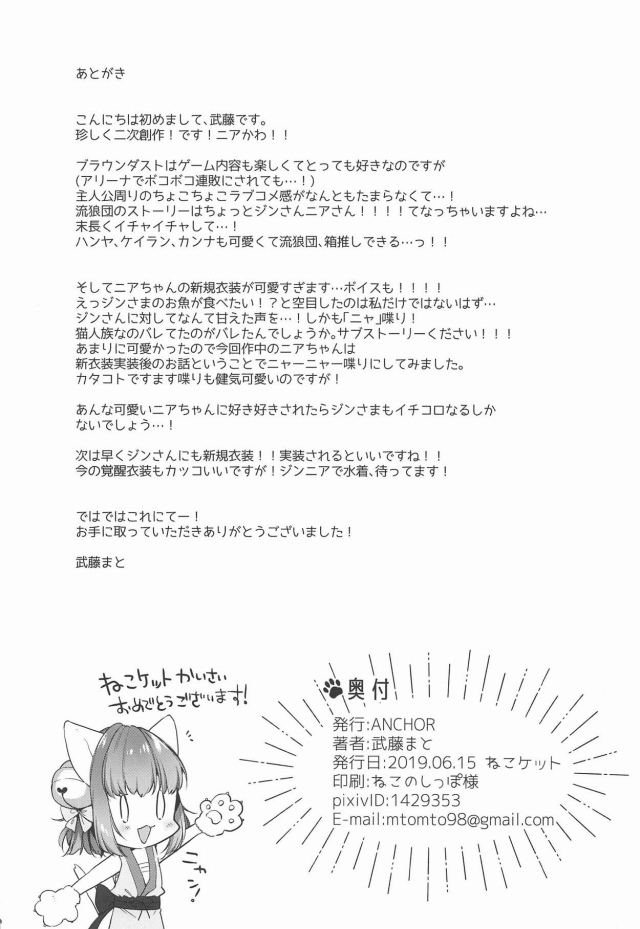 あとがき
こんにちは初めまして、武藤です。
珍しく二次創作！です！ニアかわ！！
ブラウンダストはゲーム内容も楽しくてとっても好きなのですが
(アリーナでボコボコ連敗にされても…！)
主人公周りのちょこちょこラブコメ感がなんともたまらなくて…！
流狼団のストーリーはちょっとジンさんニアさん！！！！てなっちゃいますよね…
末長くイチャイチャして…！
ハンヤ、ケイラン、カンナも可愛くて流狼団、箱推しできる…っ！！
そしてニアちゃんの新規衣装が可愛すぎます…ボイスも！！！！
えっジンさまのお魚が食べたい！？と空目したのは私だけではないはず…
ジンさんに対してなんて甘えた声を…！しかも「ニャ」喋り！
猫人族なのバレてたのがバレたんでしょうか。サブストーリーください！！！
あまりに可愛かったので今回作中のニアちゃんは
新衣装実装後のお話ということでニャーニャー喋りにしてみました。
カタコトですます喋りも健気可愛いのですが！
あんな可愛いニアちゃんに好き好きされたらジンさまもイチコロなるしか
ないでしょう…！
次は早くジンさんにも新規衣装！！実装されるといいですね！！
今の覚醒衣装もカッコいいですが！ジンニアで水着、待ってます！
ではではこれにてー！
お手に取っていただきありがとうございました！
武藤まと
ねこケットかいさい
おめでとうございます！
ニャン！
奥付
発行:ANCHOR
著者:武藤まと
発行日:2019.06.15 ねこケット
印刷:ねこのしっぽ様
pixivID:1429353
E-mail:mtomto98@gmail.com